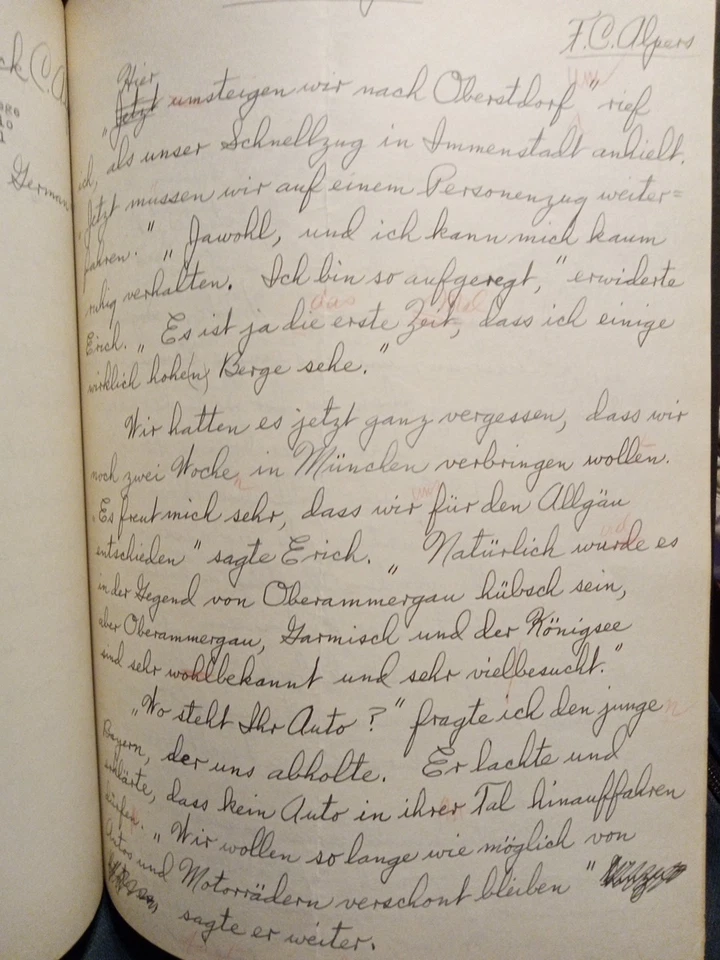 F.C. Alpers
Hier
„Jetzt umsteigen wir nach Oberstdorf" rief
um
ich, als unser Schnellzug in Immenstadt anhielt.
„Jetzt mussen wir auf einem Personenzug weiter=
fahren." „Jawohl, und ich kann mich kaum
ruhig verhalten. Ich bin so aufgeregt," erwiderte
das Mal
Erich. „Es ist ja die erste Zeit, dass ich einige
wirklich hohe(n) Berge sehe."
Wir hatten es jetzt ganz vergessen, dass wir
noch zwei Wochen in München verbringen wollen.
„Es freut mich sehr, dass wir für den Allgäu
entschieden" sagte Erich. „Natürlich wurde es
in der Gegend von Oberammergau hübsch sein,
aber Oberammergau, Garmisch und der Königsee
sind sehr wohlbekannt und sehr vielbesucht."
„Wo steht Ihr Auto?" fragte ich den jungen
Bayern, der uns abholte. Er lachte und
erklärte, dass kein Auto in ihrer Tal hinauffahren
dürfen. „Wir wollen so lange wie möglich von
Autos und Motorrädern verschont bleiben"
sagte er weiter.
ck C.A
German